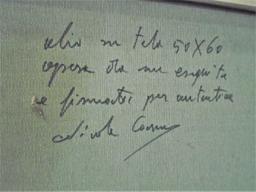 olio su tela 50X60
opera da me eseguita
e firmata per autentica